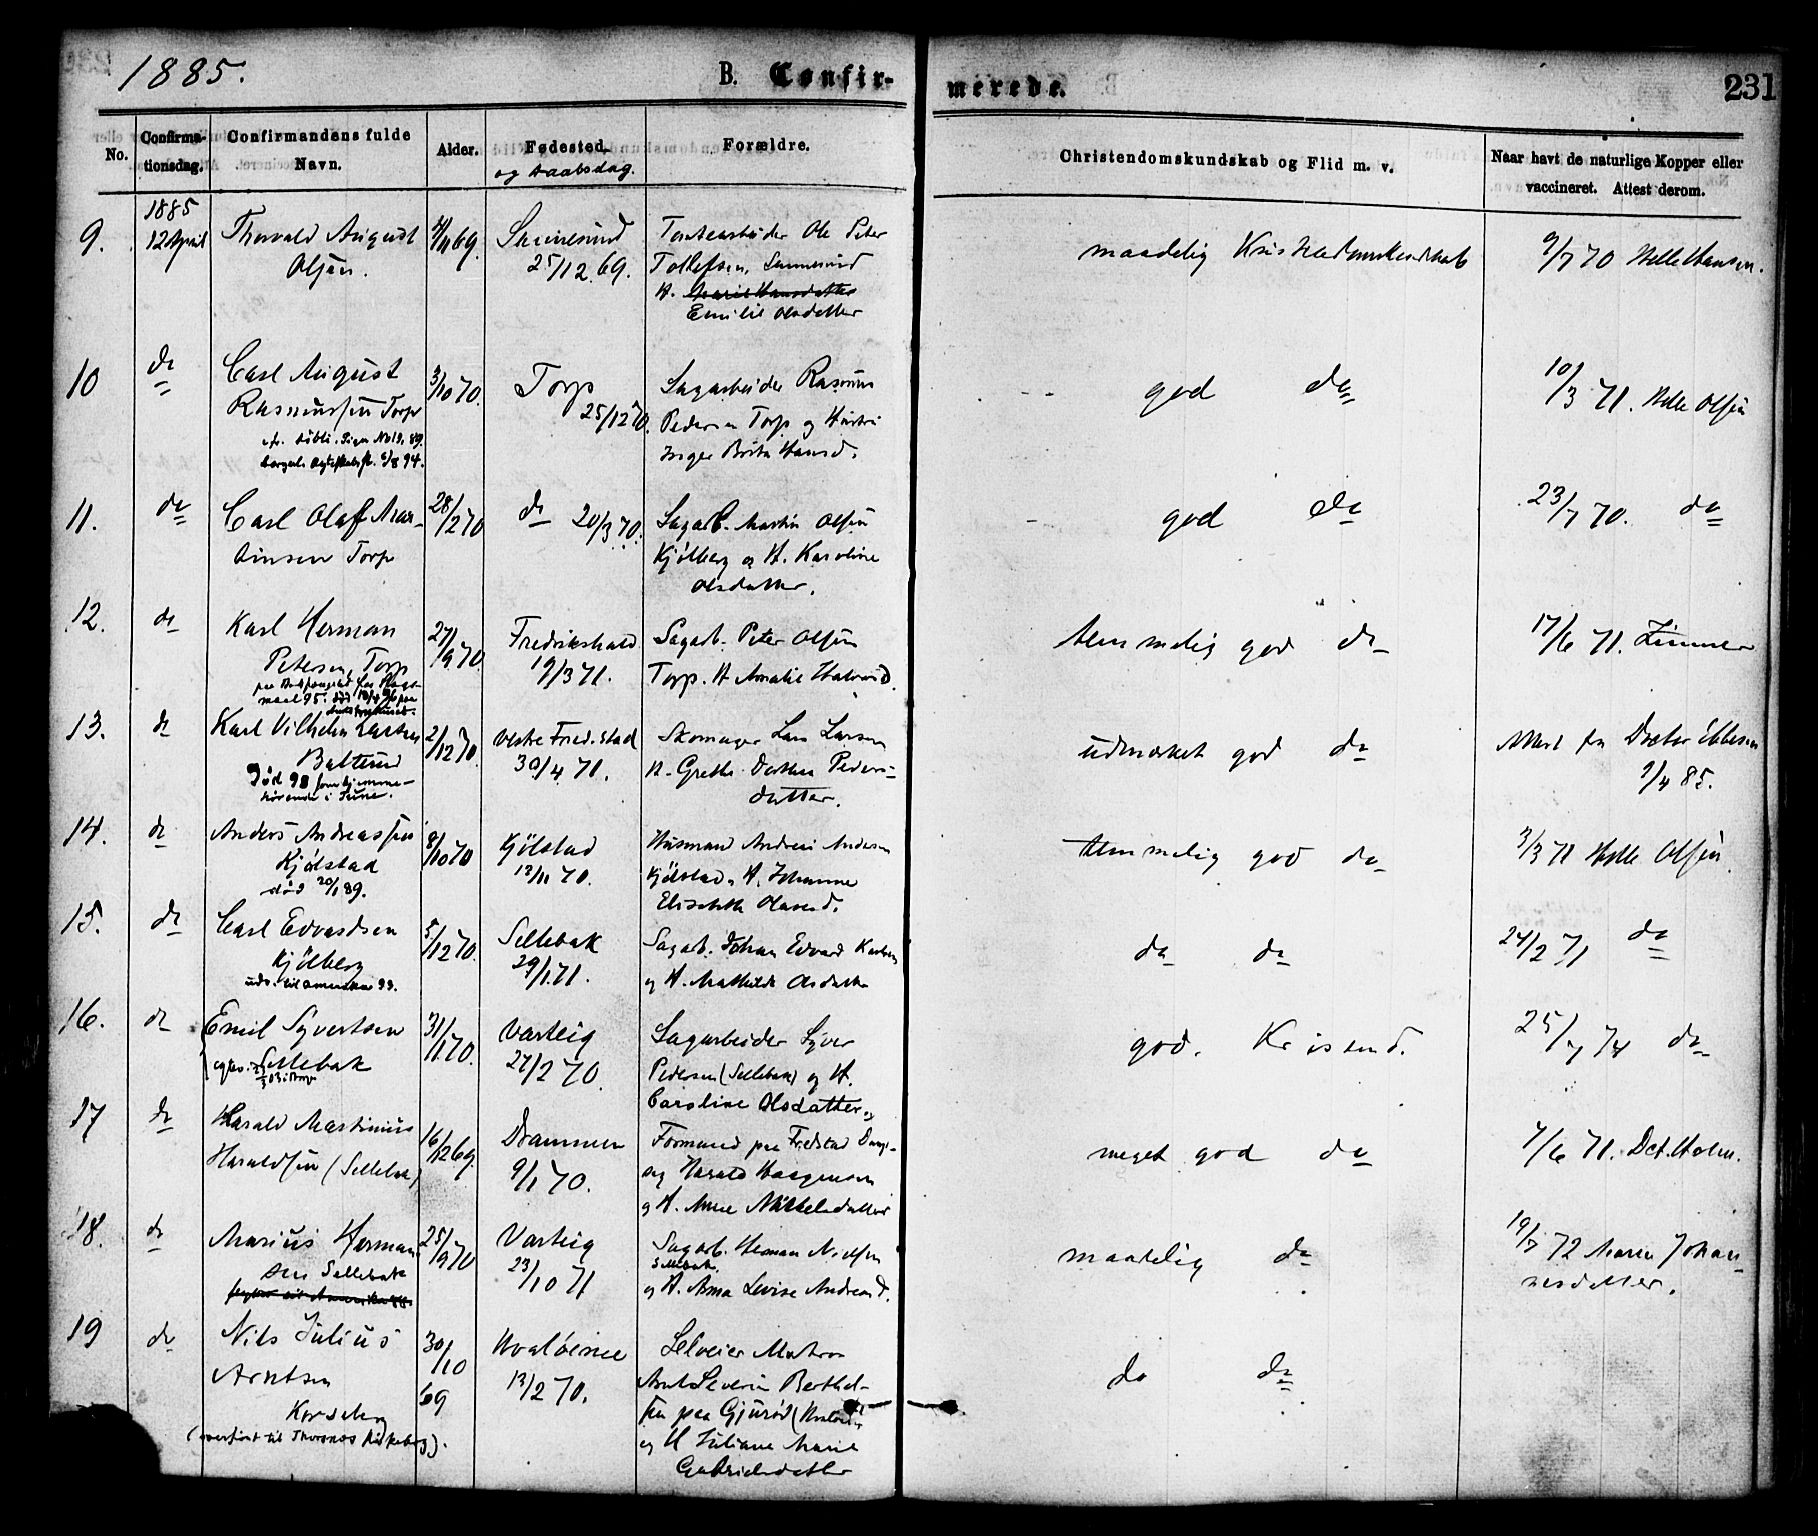 1885.
B. Confirmerede.
231
No.
Confirmationsdag.
Confirmandens fulde Navn.
Alder.
Fødested
og Daabsdag.
Forældre.
Christendomskundskab og Flid m. v.
Naar havt de naturlige Kopper eller
vaccineret. Attest derom.
1885
9. 12 April Thorvald August 4/11 69. Sannesund
Olsen. 25/12 69.
Ole Peter
Tollefsen, Sannesund
H. Marie Hansdatter
Emilie Olsdatter
maadelig Kristendomskundskab
9/7 70 Helle Hansen.
10 do Carl August 3/10 70. Torp
Rasmussen Torp 25/12 70.
Sagarbeider Rasmus
Pedersen Torp og Hustru
Inger Brita Hansd.
god do
10/3 71. Helle Olsen
11. do Carl Olaf Mar- 28/2 70 do 20/3 70.
tinsen Torp
Sagarb. Martin Olsen
Kjølberg og H. Karoline
Olsdatter.
god do
23/7 70. do
12. do Karl Herman 27/9 70. Fredrikshald
Petersen, Torp 19/3 71.
Sagarb. Peter Olsen
Torp. H Amalie Halvorsd.
temmelig god do
17/6 71. Zimmer
13. do Karl Vilhelm Larsen 2/12 70. Vestre Fred.stad
30/4 71.
Død 98 som hjemme-
hørende i Tune.
Skomager Lars Larsen
H. Grethe Dorthea Peders-
datter.
udmærket god do
Attest fra Doctor Ebbesen
9/4 85.
14. do Anders Andreassen 8/10 70 Kjølstad
Kjølstad 13/11 70.
død 20/1 89.
Husmand Andreas Andersen
Kjølstad, H. Johanne
Elisabeth Olavesd.
temmelig god do
3/3 71 Helle Olsen
15. do Carl Edvardsen 5/12 70. Sellebak
Kjølberg 29/1 71.
udv. til Amerika 93.
Sagarb. Johan Edvard Karlsen
og H. Mathilde Olsdatter
do do
24/2 71 do
16. do Emil Syvertsen 31/1 70. Varteig
Sellebak 27/2 70.
Sagarbeider Syver
Pedersen (Sellebak) og H.
Caroline Olsdatter
god. Kristend.
25/7 74 do
17 do Harald Martinius 16/12 69. Drammen
Haraldsen (Sellebak) 9/1 70.
Formand paa Fredstad Damp-
sag Harald Haagensen
og H. Anne Nikkelsdatter
meget god do
7/6 71. Dct. Holm.
18. do Marius Herman- 25/9 70 Varteig
sen Sellebak 23/10 71
Sagarb. Herman Nielsen
Sellebak
og H. Anna Lovise Andreasd.
maadelig do
19/7 72 Maren Johan-
nesdatter.
19 do Nils Julius 30/10 Hvaløerne
Arntsen 69 13/2 70.
(overført til Thorsnes Kirkebog).
Selveier Matros
Arnt Severin Berthel-
sen paa Gjurød (Hvaløer)
og H Juliane Marie
Gabrielsdatter
do do